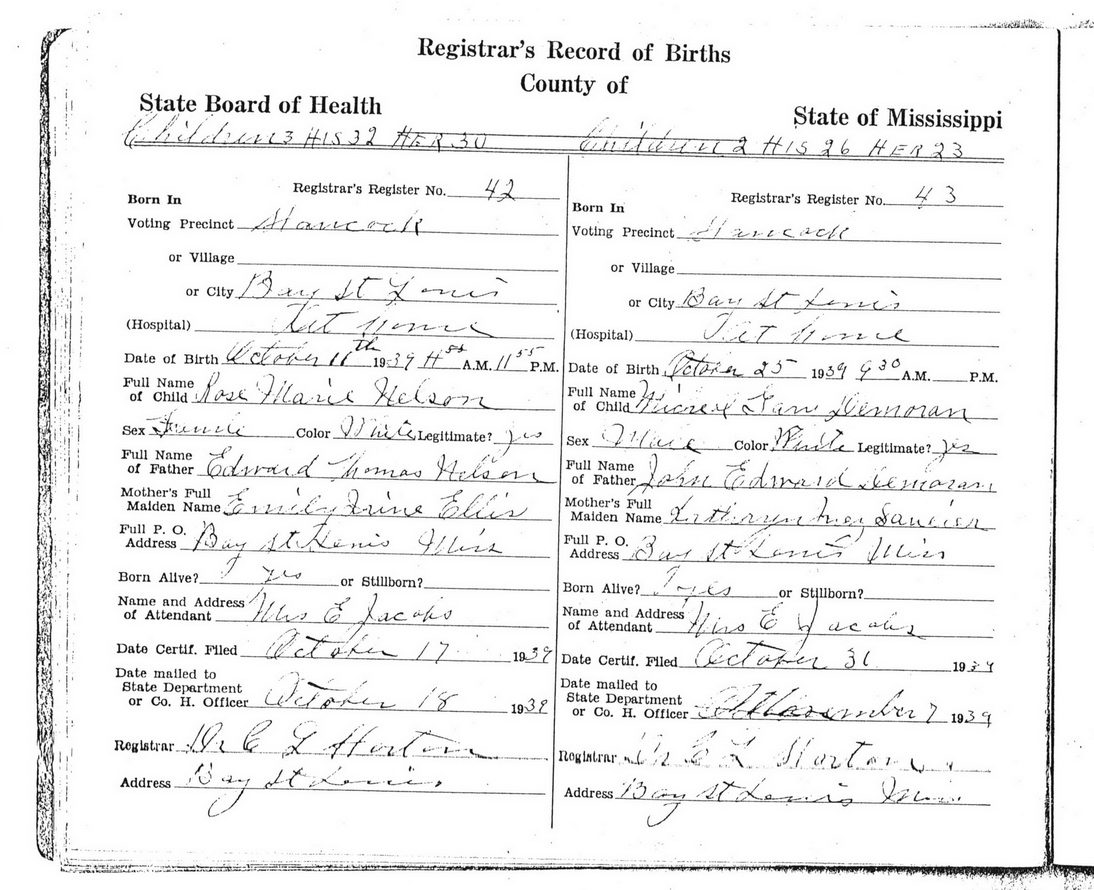 Registrar's Record of Births
County of
State Board of Health
State of Mississippi
Children 3 HIS 32 HER 30
Registrar's Register No. 42
Born In
Voting Precinct Hancock
or Village
or City Bay St Louis
(Hospital) At home
Date of Birth October 11th 1939 A.M. 11 55 P.M.
Full Name
of Child Rose Marie Nelson
Sex Color White Legitimate? yes
Full Name
of Father Edward Thomas Nelson
Mother's Full
Maiden Name Emily Irine Ellis
Full P. O.
Address Bay St Louis Miss
Born Alive? yes or Stillborn?
Name and Address
of Attendant Mrs E Jacobs
Date Certif. Filed October 17 1939
Date mailed to
State Department
or Co. H. Officer October 18 1939
Registrar Dr C L Horton
Address Bay St Louis
Children 2 HIS 26 HER 23
Registrar's Register No. 43
Born In
Voting Precinct Hancock
or Village
or City Bay St Louis
(Hospital) At home
Date of Birth October 25 1939 9 30 A.M. P.M.
Full Name
of Child Demoran
Sex Male Color White Legitimate? yes
Full Name
of Father John Edward Demoran
Mother's Full
Maiden Name Saucier
Full P. O.
Address Bay St Louis Miss
Born Alive? yes or Stillborn?
Name and Address
of Attendant Mrs E Jacobs
Date Certif. Filed October 31 1939
Date mailed to
State Department
or Co. H. Officer November 7 1939
Registrar Dr C L Horton
Address Bay St Louis Miss